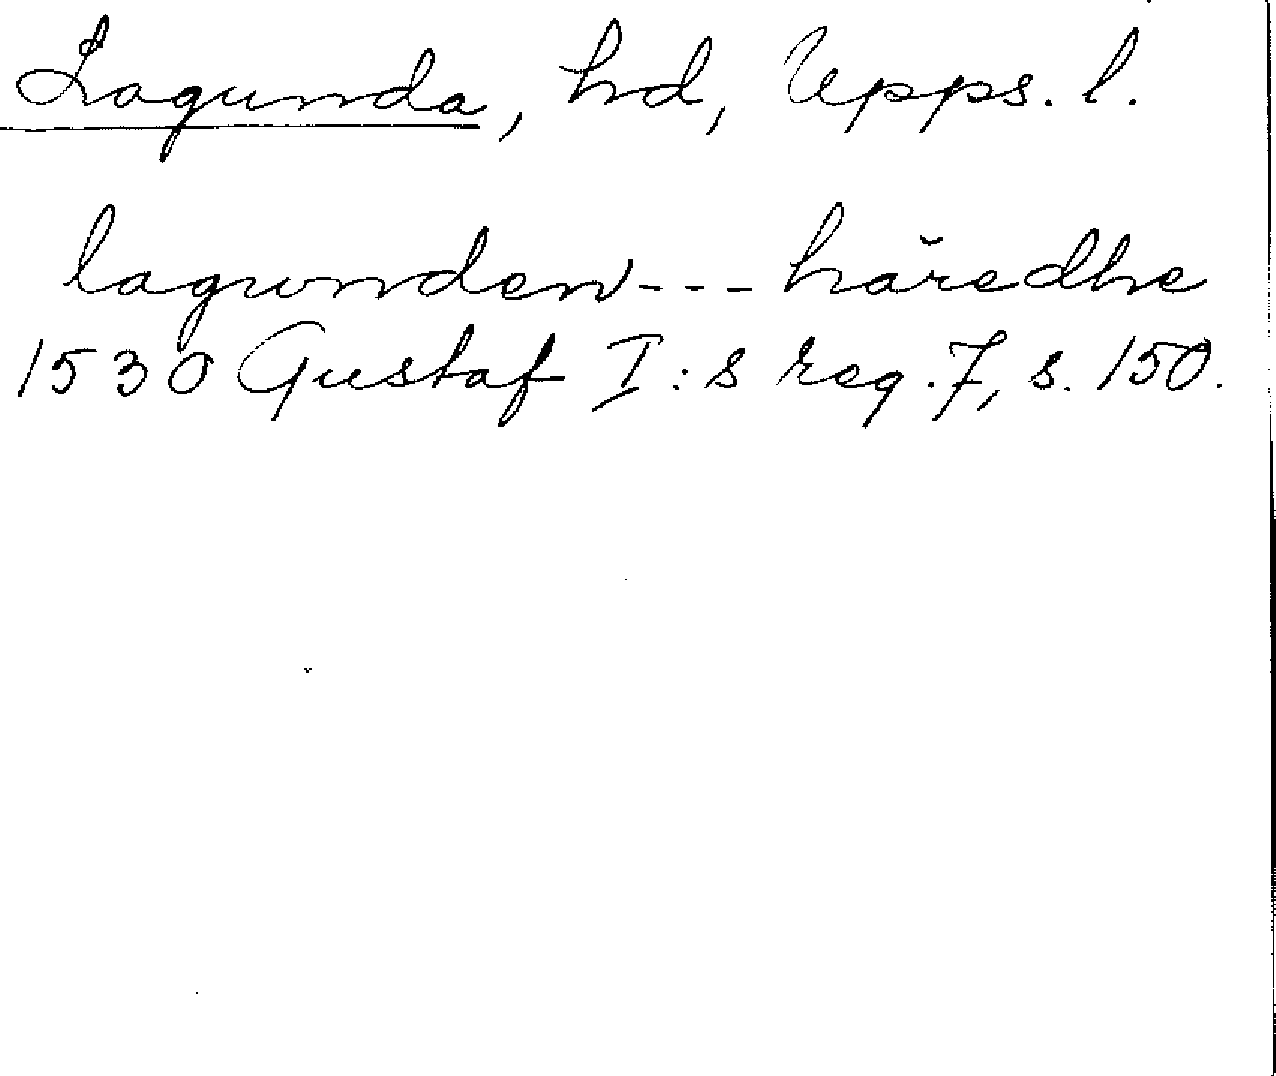 Lagunda, hd, Upps. l.
lagunden --- häredhe
1530 Gustaf I:s reg. 7, s. 150.